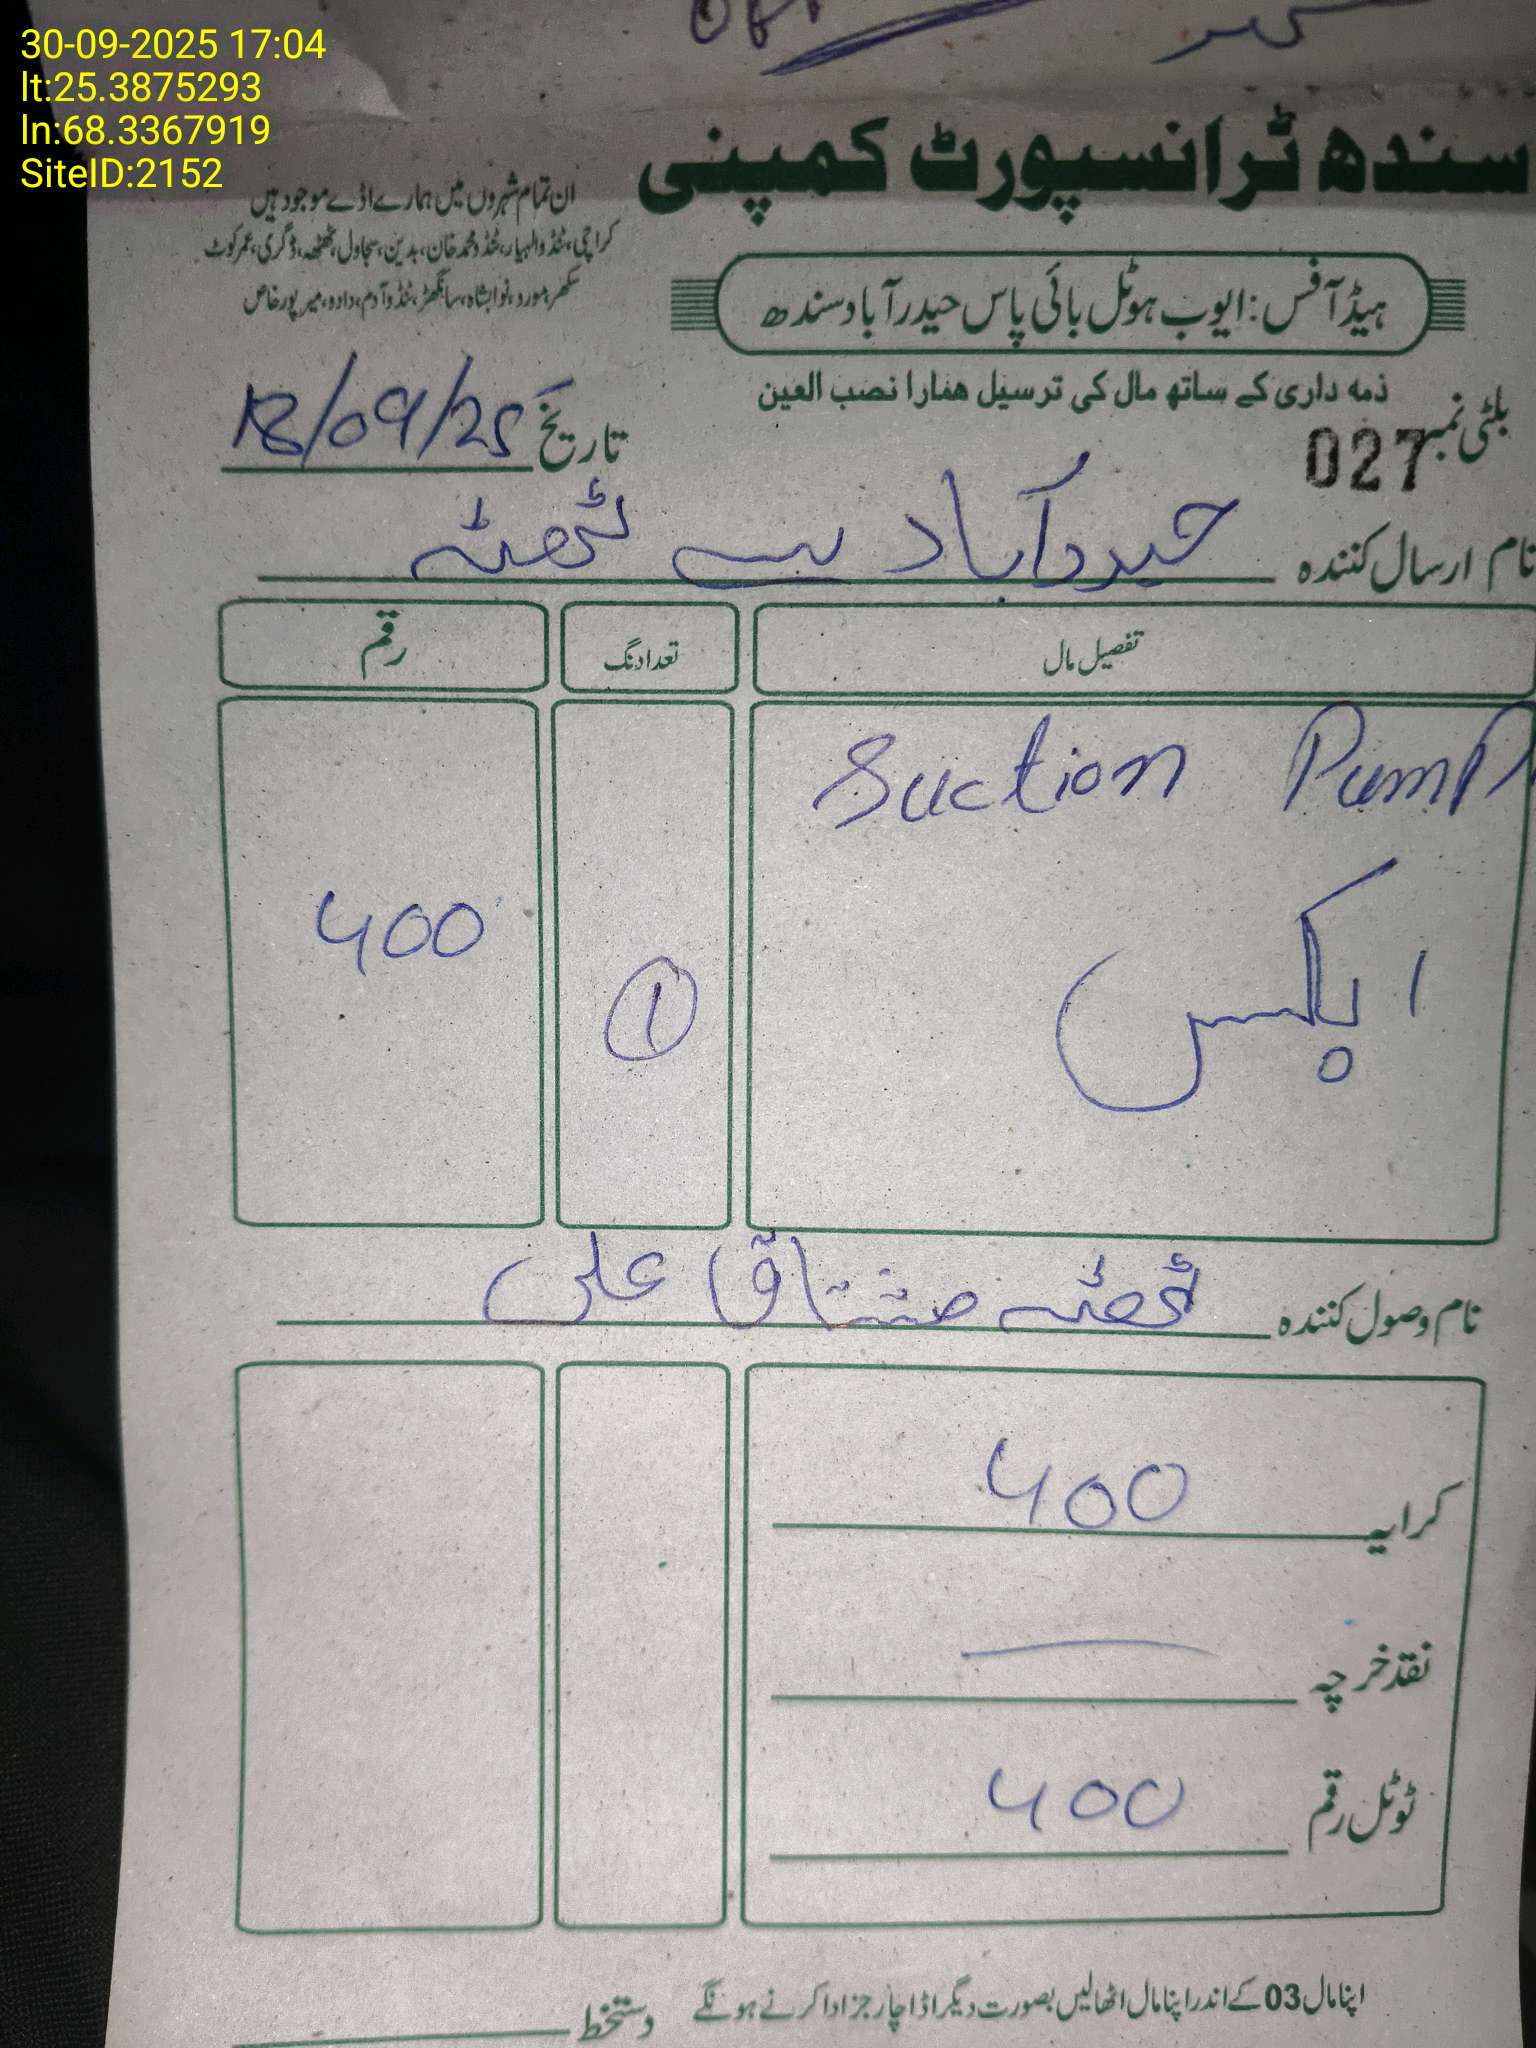 30-09-2025 17:04
lt:25.3875293
ln:68.3367919
SiteID:2152
سندھ ٹرانسپورٹ کمپنی
ان تمام شہروں میں ہمارے اڈے موجود ہیں
کراچی، ٹنڈوالہیار، ٹنڈو محمد خان، بدین، سجاول، ٹھٹھہ، ڈگری، عمرکوٹ
سکھر، مورو، نوابشاہ، سانگھڑ، ٹنڈوآدم، دادو، میرپورخاص
ہیڈ آفس: ایوب ہوٹل بائی پاس حیدرآباد سندھ
ذمہ داری کے ساتھ مال کی ترسیل ھمارا نصب العین
بلٹی نمبر 027
تاریخ 18/09/25
نام ارسال کنندہ حیدرآباد سے ٹھٹہ
تفصیل مال تعداد نگ رقم
Suction Pump
400
1
نام وصول کنندہ ٹھٹہ مشتاق علی
کرایہ 400
نقد خرچہ
ٹوٹل رقم 400
اپنا مال 03 کے اندر اپنا مال اٹھالیں بصورت دیگر اڈا چارجز ادا کرنے ہونگے
دستخط